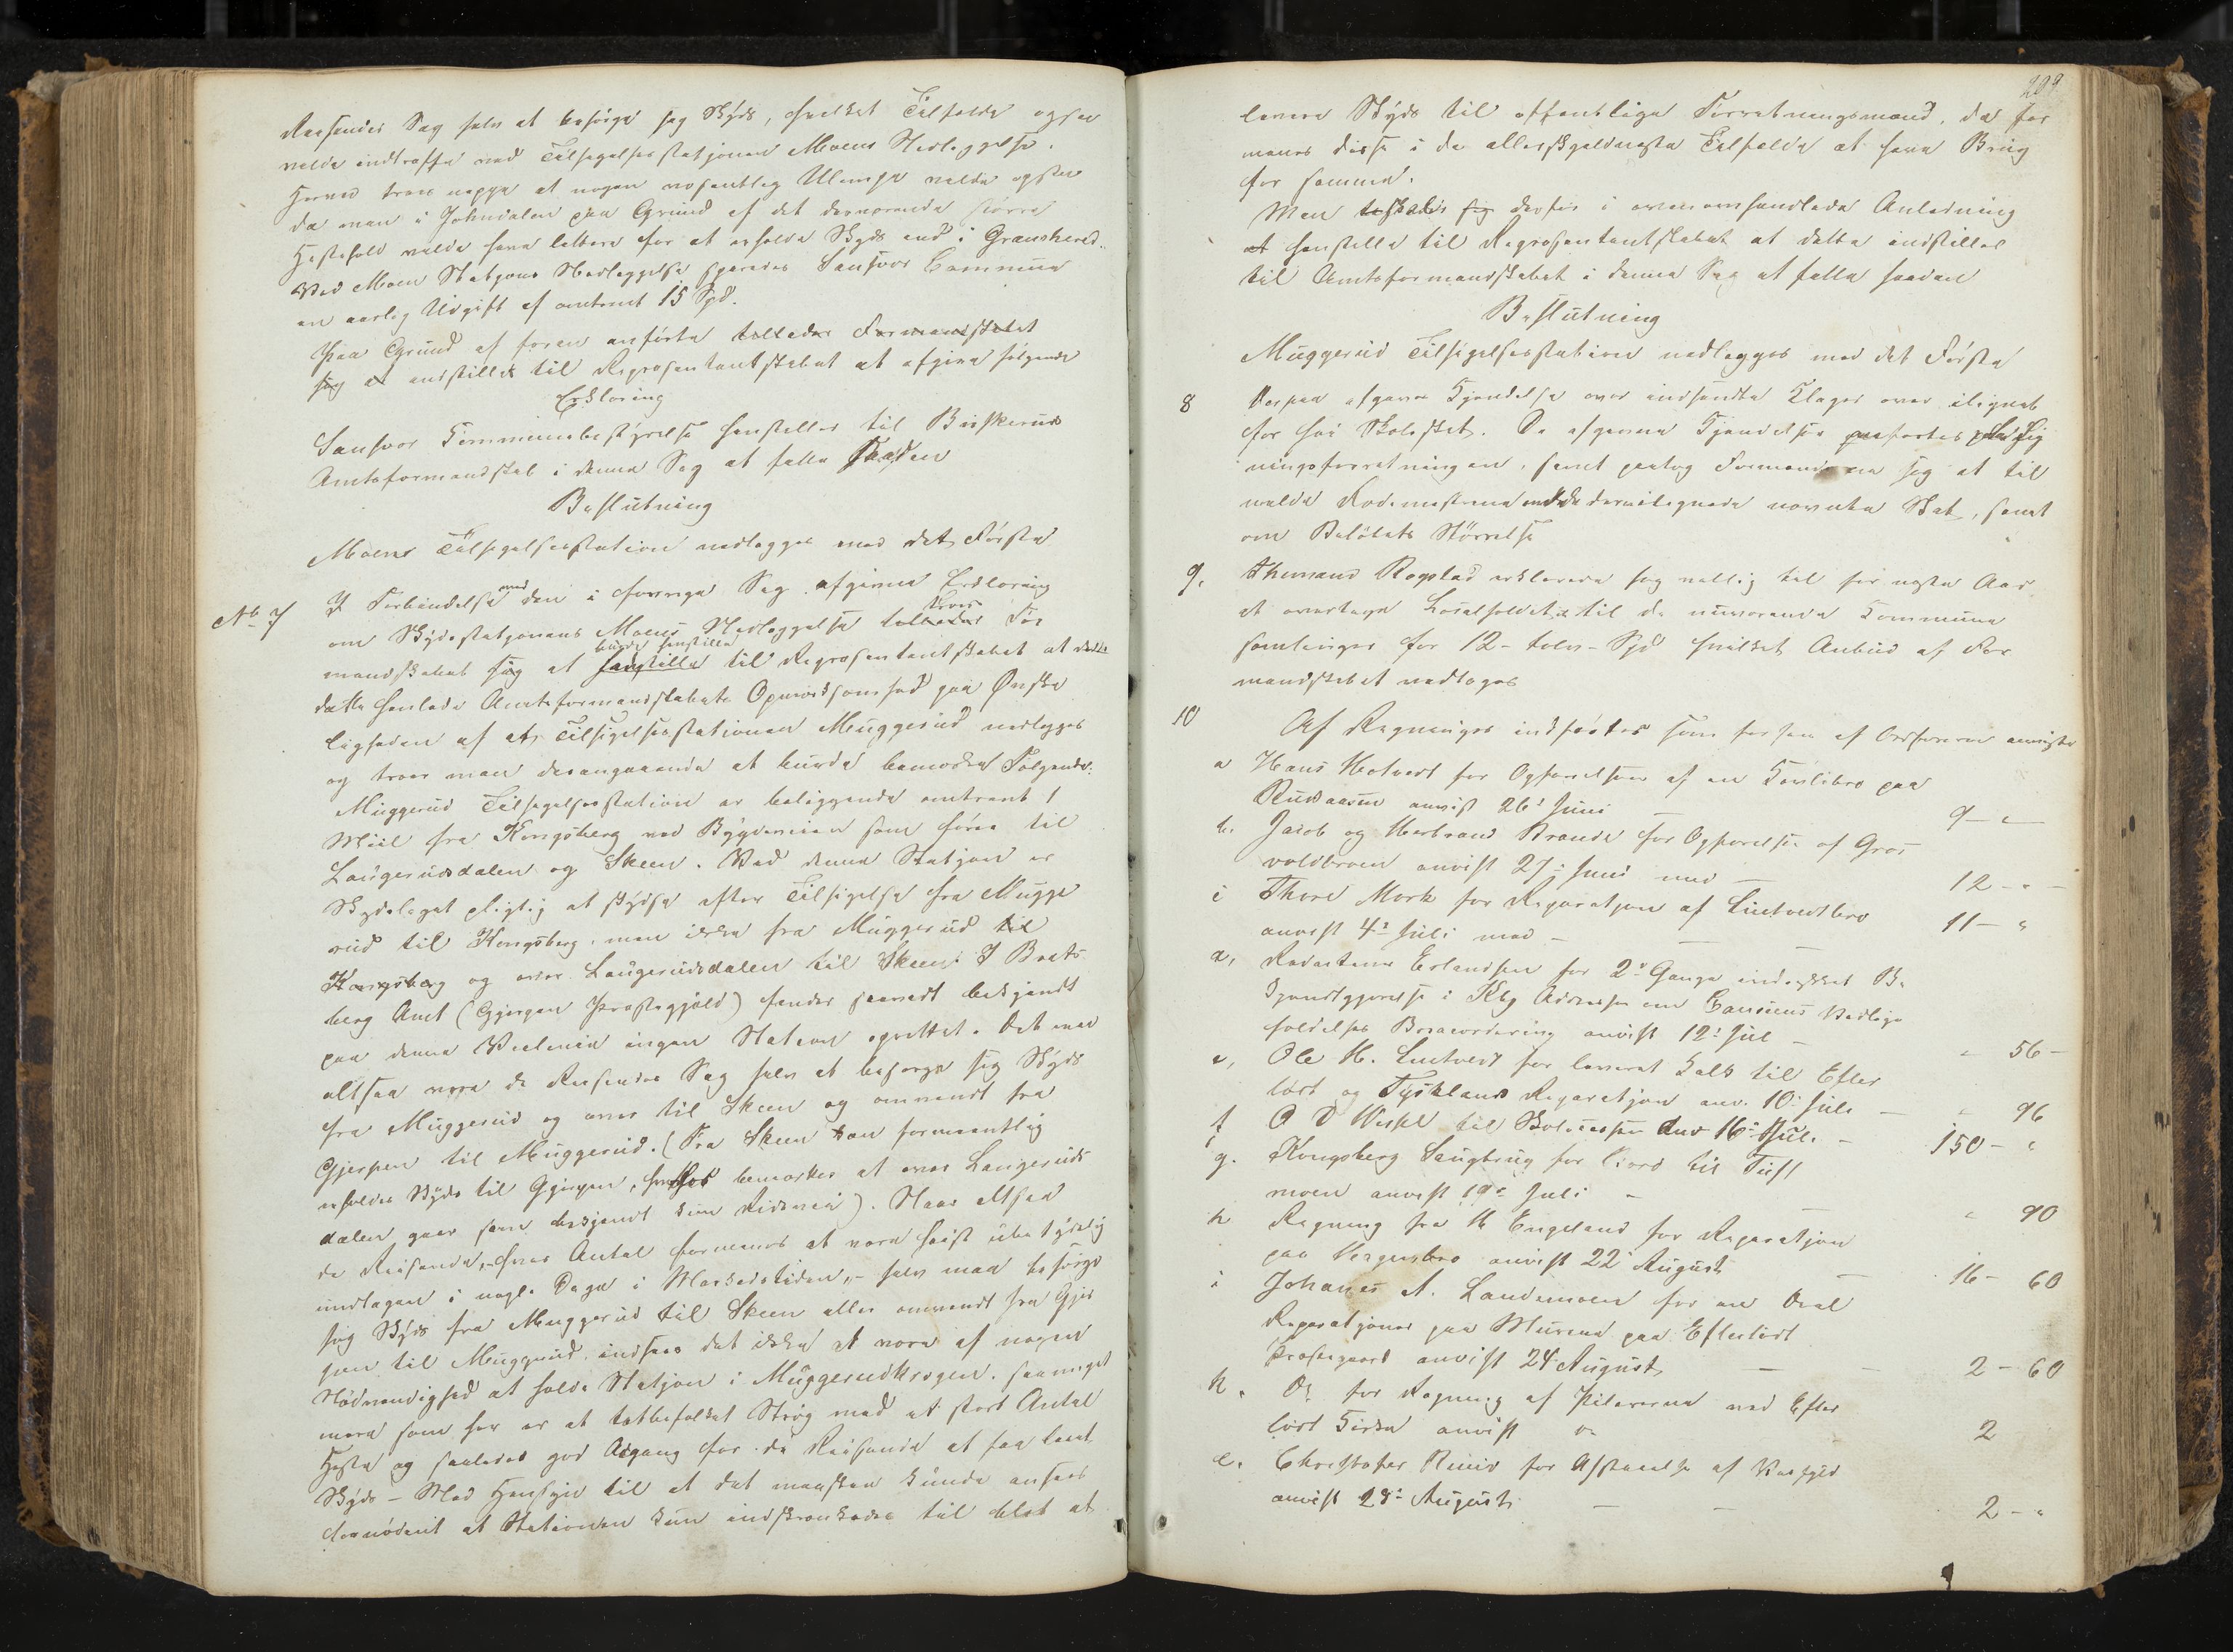 Reisendes Sag selv at besørge sig Skyds, hvilket Tilfælde ogsaa
vilde indtræffe ved Tilsigelsesstatjonen Moens Nedleggelse.
Herved troes neppe at nogen væsentlig Ulempe vilde opstaa
da man i Johndalen paa Grund af det derværende større
Hestehold vilde have lettere for at erholde Skyds end i Gransherred.
Ved Moen Statjons Nedleggelse sparedes Sandsvær Commune
en aarlig Udgift af omtrent 15 Spd.
Paa Grund af foran anførte tillader Formandskabet
sig at indstille til Repræsentantskabet at afgive følgende
Erklæring
Sandsvær Kommunebestyrelse henstiller til Buskeruds
Amtsformandskab i denne Sag at fatte saadan
Beslutning
Moens Tilsigelsesstation nedlægges med det Første
No 7 I Forbindelse med den i forrige Sag afgivne Erklæring
om Skydsstatjonens Moens Nedleggelse tillader troer For
mandskabet sig at burde henstille til Repræsentantskabet at dette
henleder Amtsformandskabets Opmærksomhed paa Ønske
ligheden af at Tilsigelsesstationen Muggerud nedlegges
og troer man desangaaende at burde bemærke Følgende:
Muggerud Tilsigelsesstation er beliggende omtrent 1
Miil fra Kongsberg ved Bygdeveien som fører til
Laugerudsdalen og Skeen. Ved denne Statjon er
Skydslaget pligtig at skydse efter Tilsigelse fra Mugge
rud til Kongsberg, men ikke fra Muggerud til
Kongsberg og over Laugerudsdalen til Skeen. I Brats
berg Amt (Gjerpen Præstegjeld) findes saavidt bekjendt
paa denne Veilinie ingen Station oprettet. Det maa
altsaa være de Reisendes Sag selv at besørge sig Skyds
fra Muggerud og over til Skeen og omvendt fra
Gjerpen til Muggerud. (Fra Skeen kan formeentlig
erholdes Skyds til Gjerpen, bemærkes at over Laugeruds
dalen gaar som bekjendt kun Rideveie). Naar altsaa
de Reisende, hvis Antal formenes at være høist ubetydelig
undtagen i nogle Dage i Markedstiden, selv maa besørge
sig Skyds fra Muggerud til Skeen eller omvendt fra Gjer
pen til Muggerud indsees det ikke at være af nogen
Nødvendighed at holde Statjon i Muggerudkrogen, saameget
mere som her er et tætbefolket Strøg med et stort Antal
Heste og saaledes god Adgang for de Reisende at faa leiet
Skyds – Med Hensyn til at det maaskee kunde ansees
fornødent at Stationen kun indskrænkedes til blot at
209
levere Skyds til offentlige Forretningsmænd, da for
menes disse i de allersjeldneste Tilfælde at have Brug
for samme.
Man tillader sig derfor i ovenomhandlede Anledning
at henstille til Repræsentantskabet at dette indstiller
til Amtsformandskabet i denne Sag at fatte saadan
Beslutning
Muggerud Tilsigelsesstation nedlegges med det Første
8 Derpaa afgaves Kjendelse over indsendte Klager over ilignet
for høi Skoleskat. De afgivne Kjendelser paaførtes Lig
ningsforretningen, samt paatog Formændene sig at til
melde Rodemestrene de derved ilignede Skat, samt
om Beløbets Størrelse
9. Thurmand Rogstad erklærede sig villig til for neste Aar
at overtage Locale holdet til de nuværende Kommune
samlinger for 12 - tolv - Spd hvilket Anbud af For
mandskabet vedtoges
10 Af Regninger indførtes som forhen af Ordføreren anviste
a Hans Hotvedt for Opførelsen af en Kavlibro paa
anvist 26d Juni — 9 – "
b. Jacob og Herbrand Brande for Opførelse af Gros
voldbroen anvist 27d Juni med — 12 – "
c Thord Mork for Reparatjon af Lintvedtbro
anvist 4d Juli med — 11 – "
d, Redacteur Erlandsen for 2de Gange indrykket Be
kjendtgjørelse i Kbg Adresse om Vedlige
holdelse anvist 12d Juli — " 56 –
e, Ole H. Lintvedt for leveret Kalk til Efte
løt og Tuftlands Reparatjon anv. 10d Juli — " 96
f O D Wessel til Skolecassen anv 16d Juli — 150 – "
g. Kongsberg Saugbrug for Bord til Tuft
moen anvist 19d Juli — " 90
h Regning fra H Engeland for Reparatjon
paa anvist 22d August — 16 – 60
i Johanes A. Landsmoen for en Deel
Reparatjoner paa Murene paa Efteløt
Præstegaard anvist 24 August — 2 – 60
k. Do for Regning af Pilarerne ved Efte
løt Kirke anvist do 2
l. Christofer Ruud for Afstaaelse af Veifyld
anvist 28d August — 2 – "